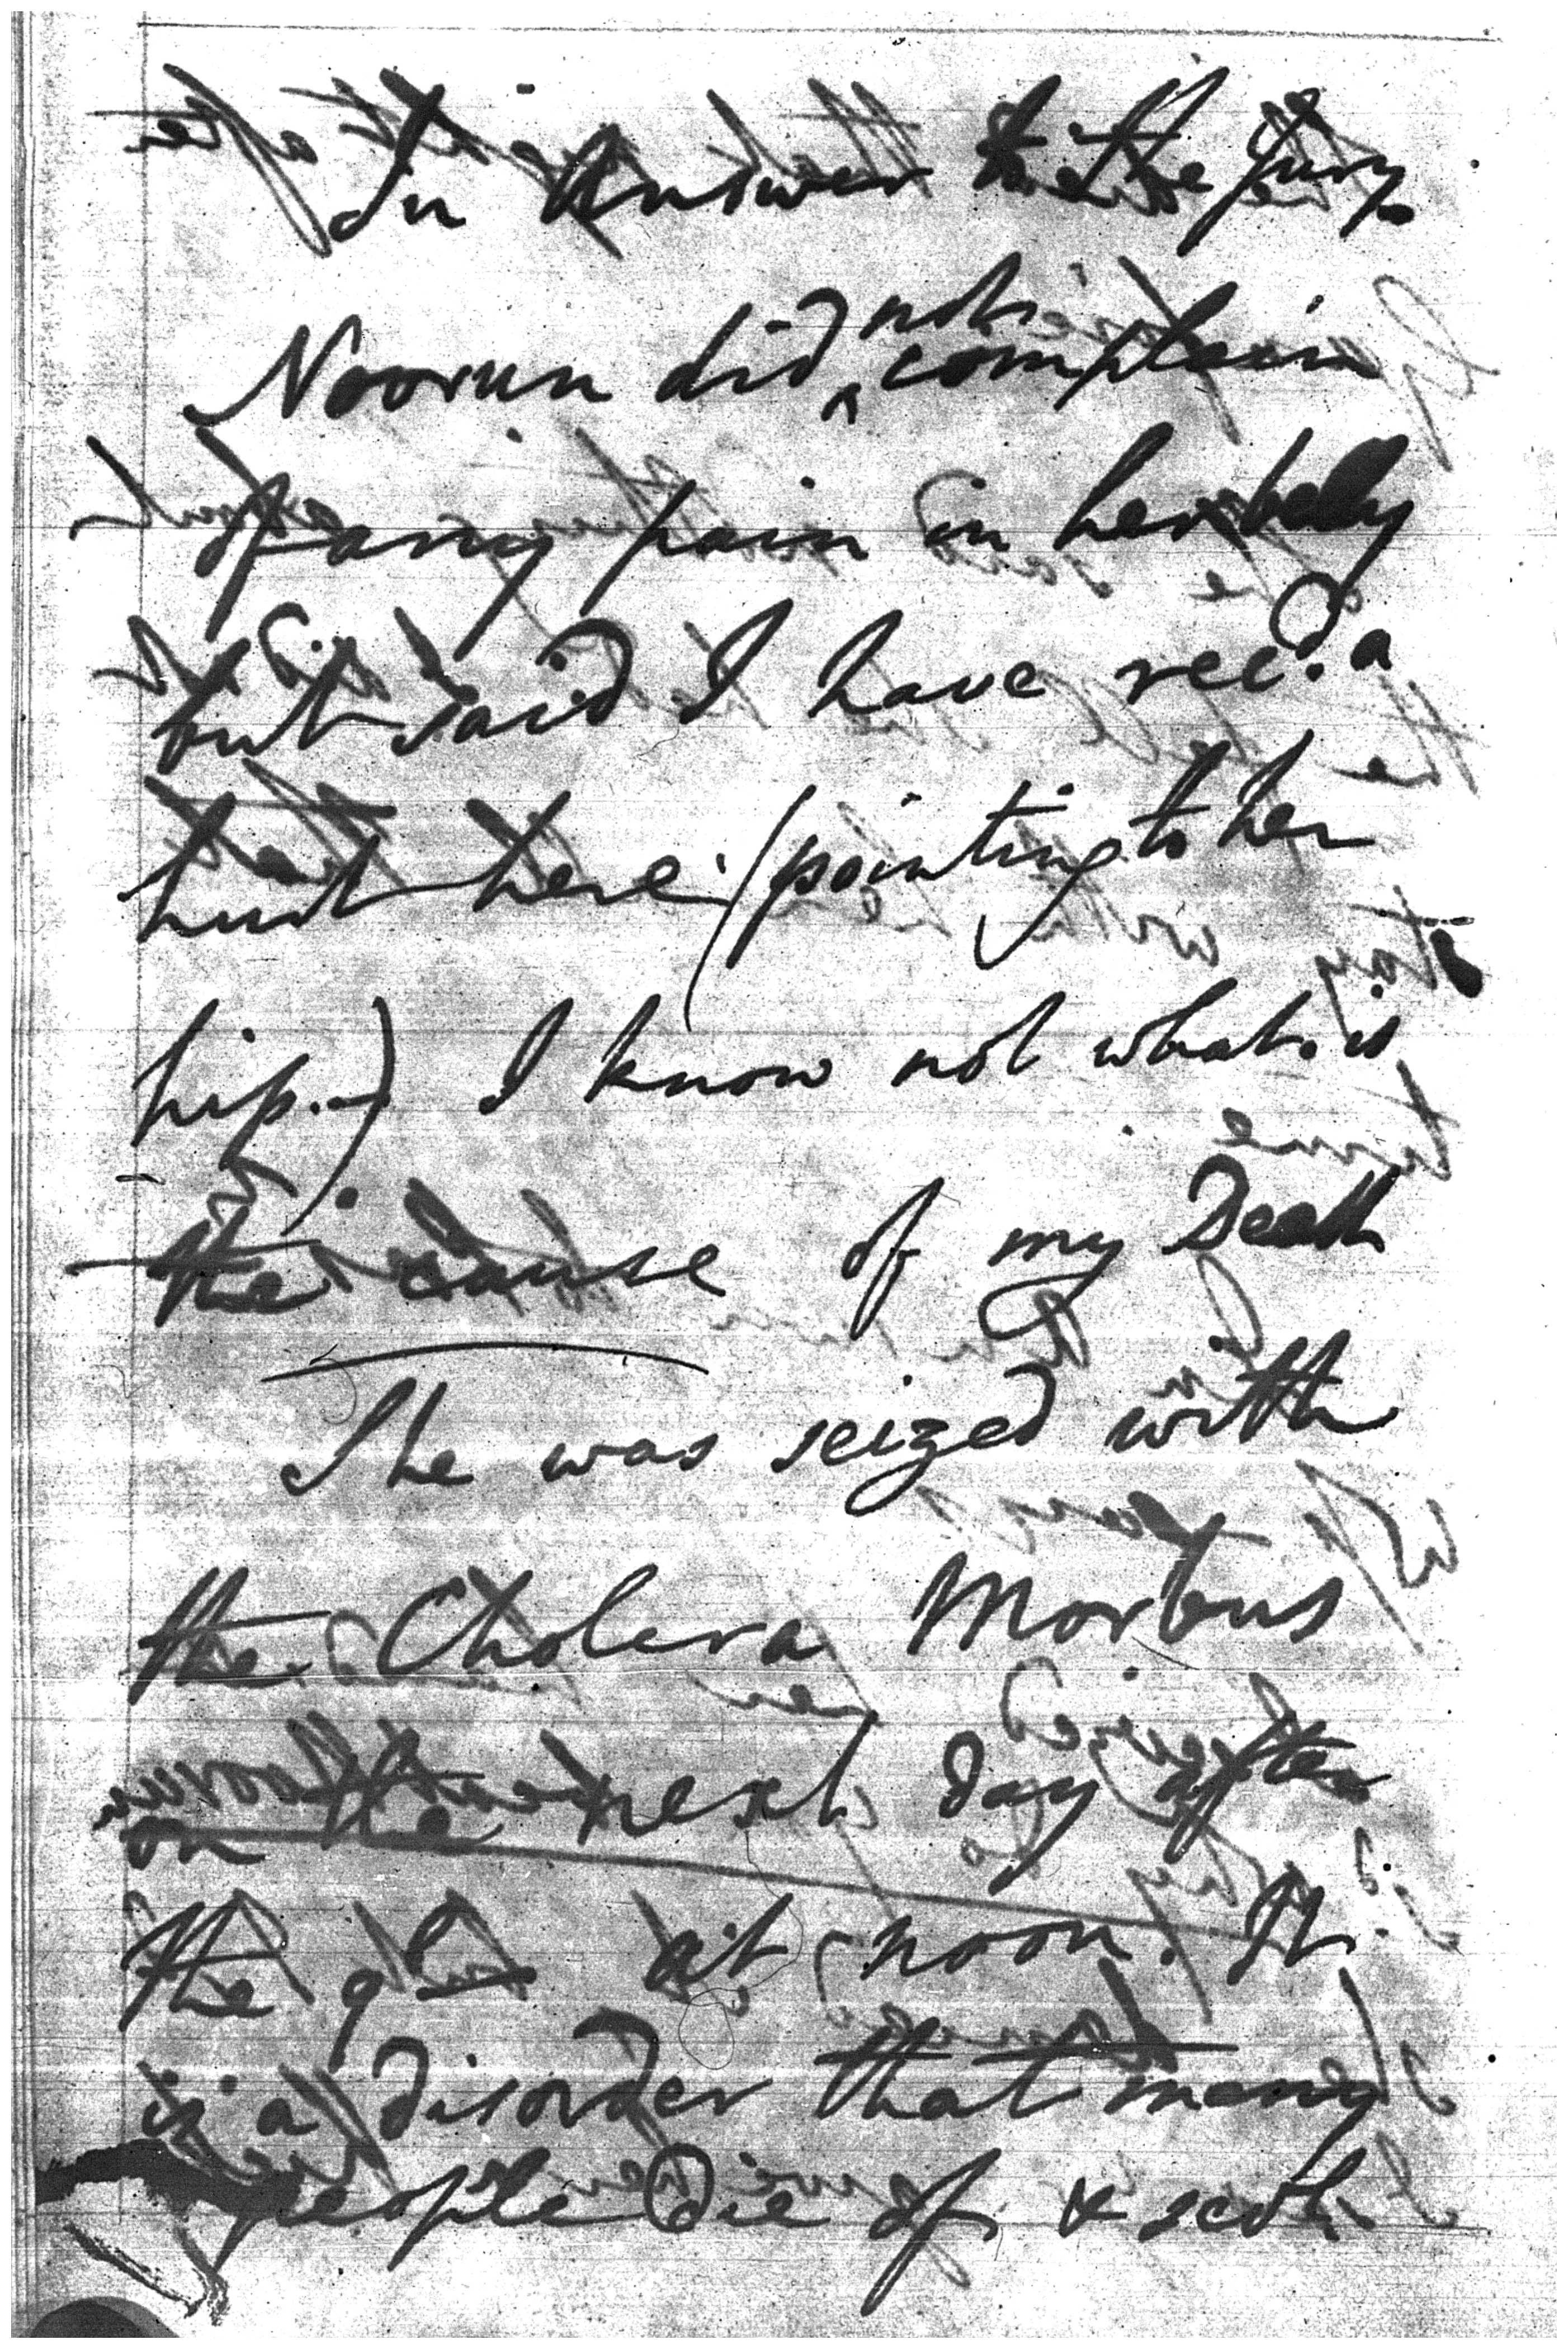 In Answer to the Jury.
Noorun did not complain
of any pain in her belly
but said I have recd. a
hurt here (pointing to her
hip.) I know not what is
the cause of my Death
She was seized with
the Cholera Morbus
on the next day after
the at noon. It
is a disorder that many
people die of &